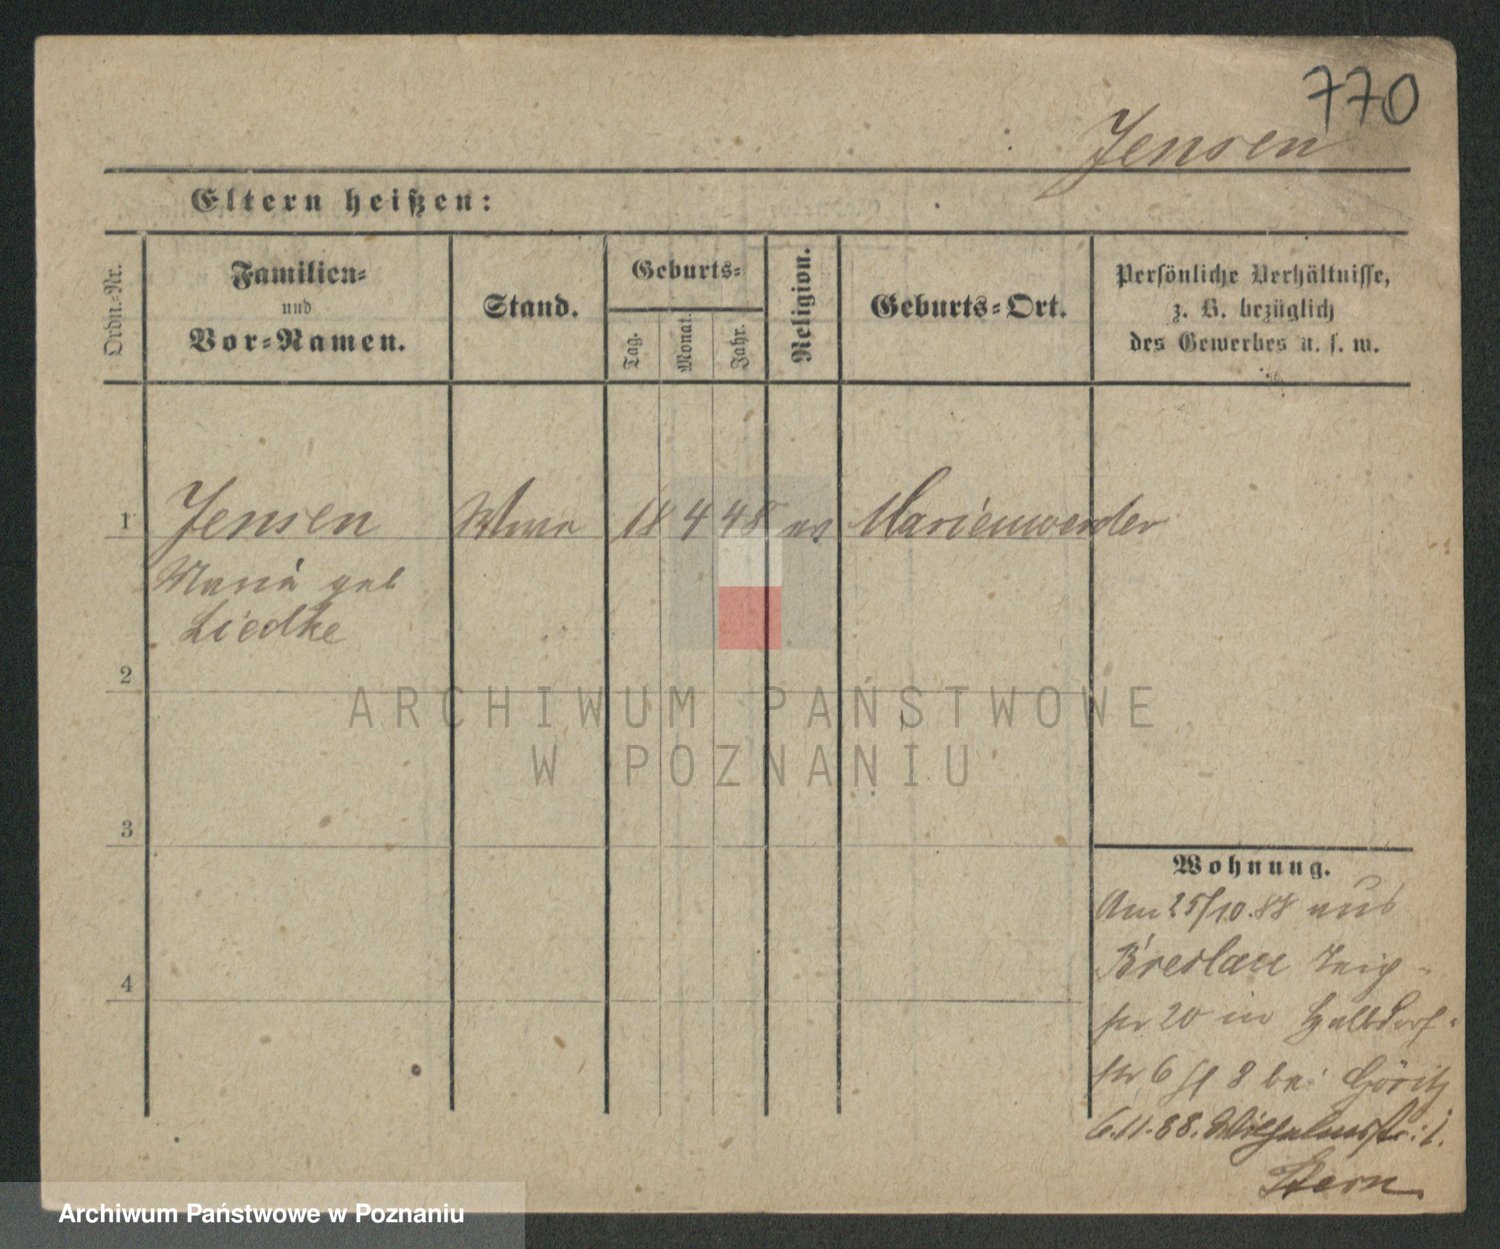 770
Jensen
Eltern heißen:
Ordn.-Nr.
Familien-
und
Vor-Namen.
Stand.
Geburts-
Tag.
Monat.
Jahr.
Religion.
Geburts-Ort.
Persönliche Verhältnisse,
z. B. bezüglich
des Gewerbes u. s. w.
1 Jensen 18 4 48 ev Marienwerder
Maria geb
Liedke
2
ARCHIWUM PAŃSTWOWE
W POZNANIU
3
4
Wohnung.
Am 25/10.88 aus
Breslau
20 in Halbdorf-
str 6 8 bei Göritz
6.11.88. Wilhelmstr: 1.
Stern
Archiwum Państwowe w Poznaniu